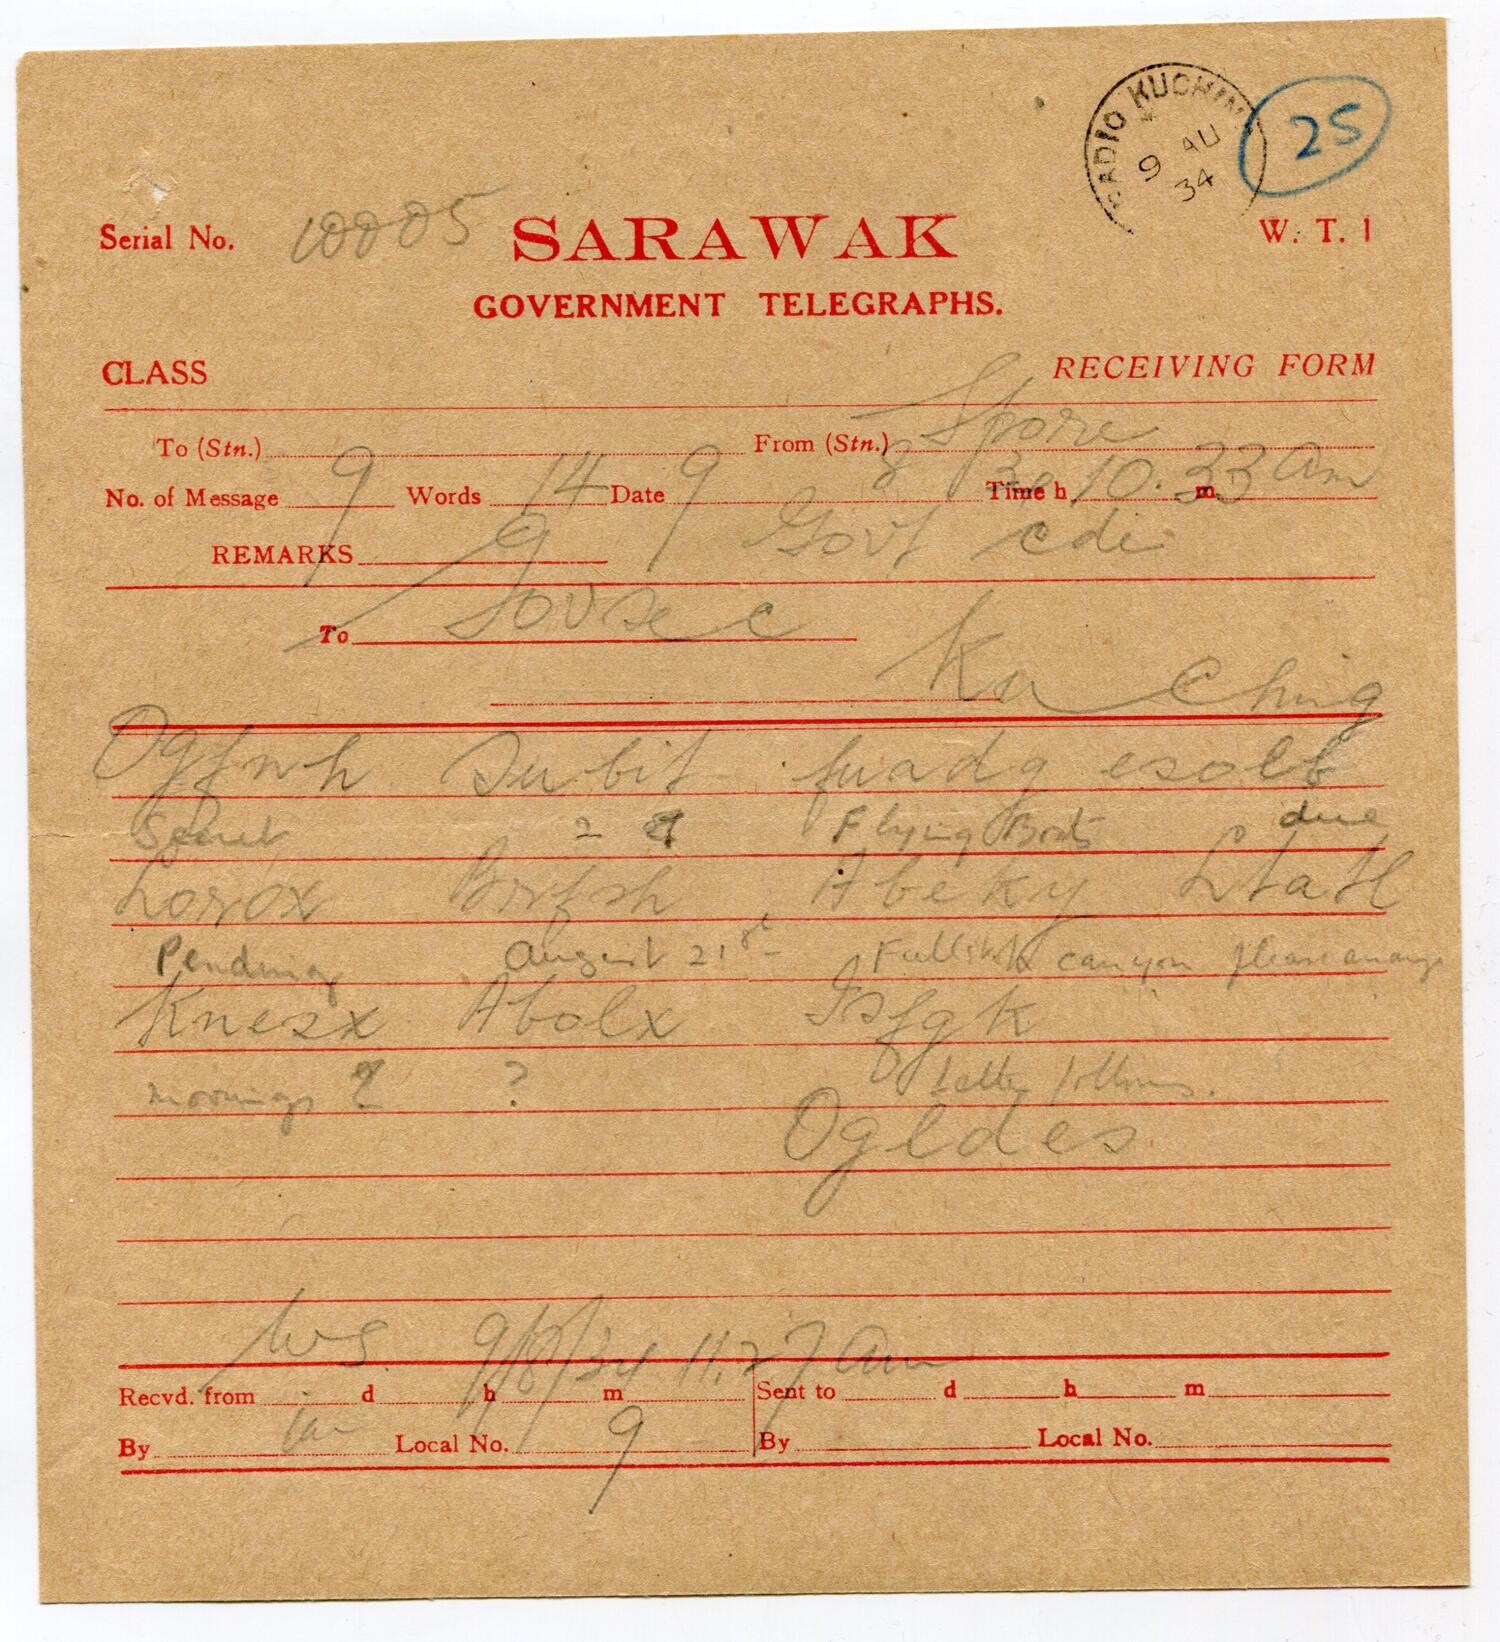 RADIO KUCHIN
9 AU
34
25
Serial No. 10005 SARAWAK W. T. 1
GOVERNMENT TELEGRAPHS.
CLASS RECEIVING FORM
To (Stn.) From (Stn.) Spore
No. of Message 9 Words 14 Date 9 8 Time h 10.33 am m
REMARKS 9 Govt cde
To Govsec
Kuching
Ogfnh Subit fuadg esolb
Secret 2 Flying Boats due
Lorox Brfsh Abeky Ltatl
Pending August 21st Fullstop can you please arrange
Knesx Abolx Isfgk
moorings ? ? Letter follows.
Ogldes
WS 9/8/34 11.27 am
Recvd. from d h m Sent to d h m
By Local No. 9 By Local No.